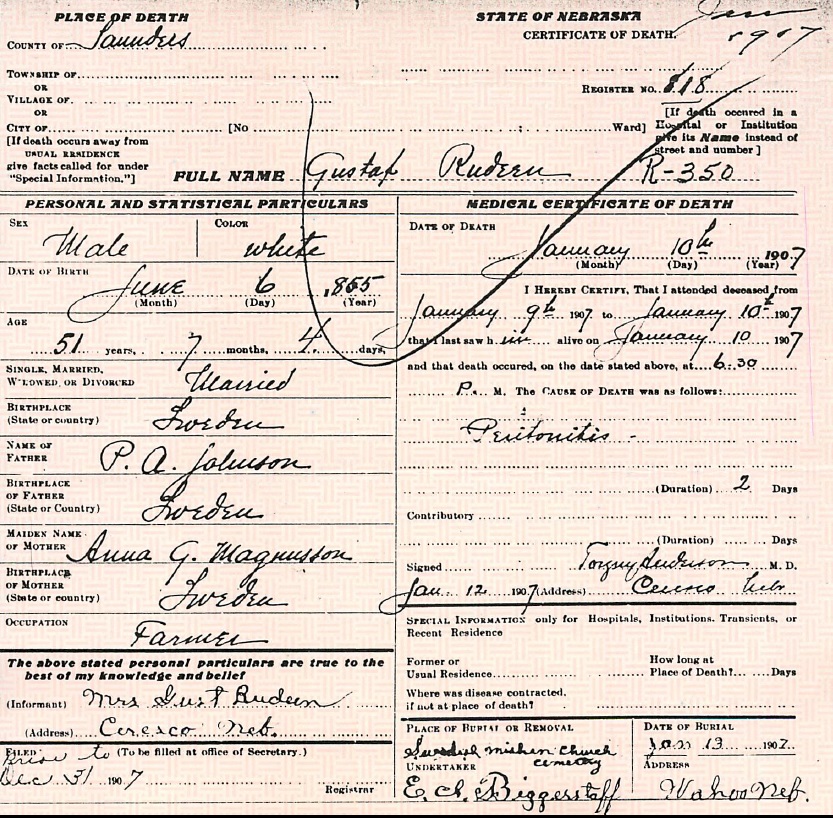 PLACE OF DEATH
COUNTY OF Saunders
TOWNSHIP OF
OR
VILLAGE OF
OR
CITY OF [No ; Ward]
[If death occurs away from
USUAL RESIDENCE
give facts called for under
"Special Information."]
STATE OF NEBRASKA
CERTIFICATE OF DEATH.
Jan
1907
REGISTER NO. 818
[If death occured in a
Hospital or Institution
give its Name instead of
street and number]
FULL NAME Gustaf Rudeen R-350
PERSONAL AND STATISTICAL PARTICULARS
SEX COLOR
Male white
DATE OF BIRTH
June 6 1855
(Month) (Day) (Year)
AGE
51 years, 7 months, 4 days,
SINGLE, MARRIED,
WIDOWED, OR DIVORCED Married
BIRTHPLACE
(State or country) Sweden
NAME OF
FATHER P. A. Johnson
BIRTHPLACE
OF FATHER
(State or Country) Sweden
MAIDEN NAME
OF MOTHER Anna G. Magnusson
BIRTHPLACE
OF MOTHER
(State or country) Sweden
OCCUPATION
Farmer
The above stated personal particulars are true to the
best of my knowledge and belief
(Informant) Mrs Gust Rudeen
(Address) Ceresco Neb.
FILED (To be filed at office of Secretary.)
prior to
Dec 31 1907
Registrar
MEDICAL CERTIFICATE OF DEATH
DATE OF DEATH
January 10th 1907
(Month) (Day) (Year)
I HEREBY CERTIFY, That I attended deceased from
January 9th 1907 to January 10th 1907
that I last saw him alive on January 10 1907
and that death occured, on the date stated above, at 6:30
P. M. The CAUSE OF DEATH was as follows:
Peritonitis -
(Duration) 2 Days
Contributory
(Duration) Days
Signed Anderson M. D.
Jan. 12 1907 (Address) Ceresco Neb
SPECIAL INFORMATION only for Hospitals, Institutions, Transients, or
Recent Residence
Former or How long at
Usual Residence Place of Death? Days
Where was disease contracted,
if not at place of death?
PLACE OF BURIAL OR REMOVAL DATE OF BURIAL
Swedish mishen church Jan 13 1907
cemetery
UNDERTAKER ADDRESS
Biggerstaff Wahoo Neb.